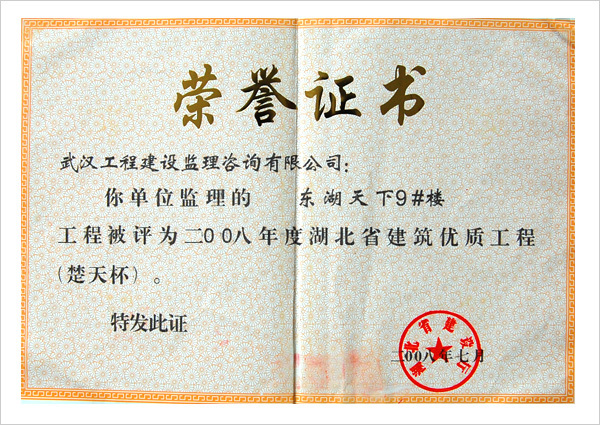 荣誉证书
武汉工程建设监理咨询有限公司：
你单位监理的 东湖天下9#楼
工程被评为二00八年度湖北省建筑优质工程
（楚天杯）。
特发此证
湖北省建设厅
二00八年七月